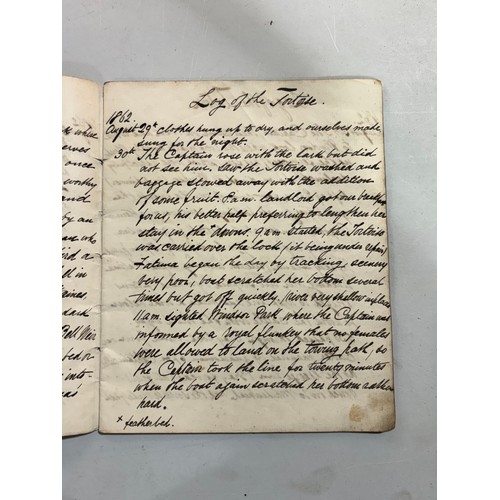 Log of the Tortoise.
1862
August 29th clothes hung up to dry, and ourselves made
snug for the night.
30th The Captain rose with the lark but did
not see him, saw the Tortoise washed and
baggage stowed away with the addition
of some fruit. 8 a.m. landlord got our breakfast
for us, his better half preferring to lengthen her
stay in the downs. 9 a.m. started, the Tortoise
was carried over the lock (it being under repair)
Fatima began the day by tracking, scenery
very poor, boat scratched her bottom several
times but got off quickly, river very shallow in places
11 a.m. sighted Windsor Park where the Captain was
informed by a royal flunkey that no females
were allowed to land on the towing path, so
the Captain took the line for twenty minutes
when the boat again scratched her bottom rather
hard.
x featherbed.
where
serves
once
worthy
and
by an
who
a
in
dark
Bell Weir
bed or
into-